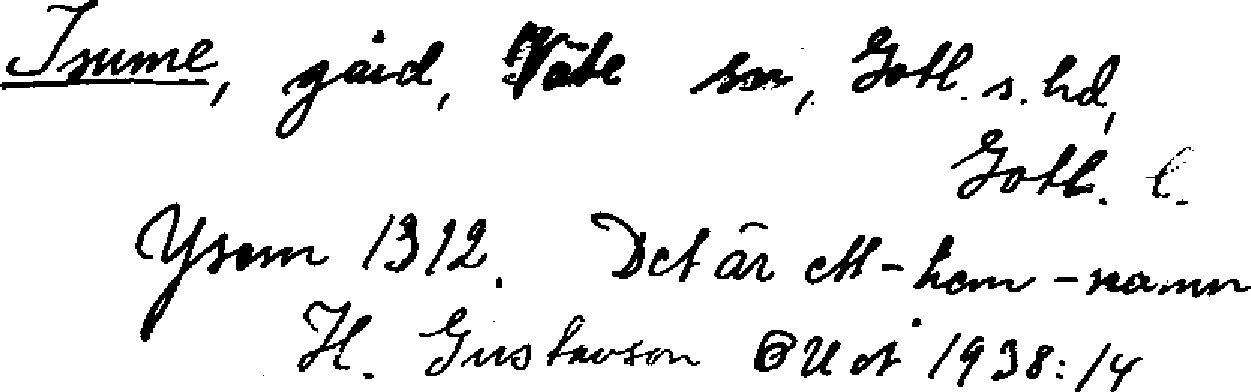 Isume, gård, Väte sn, Gotl. s. hd,
Gotl. l.
Ysem 1312. Det är ett -hem -namn
H. Gustavson GUÅ 1938:14